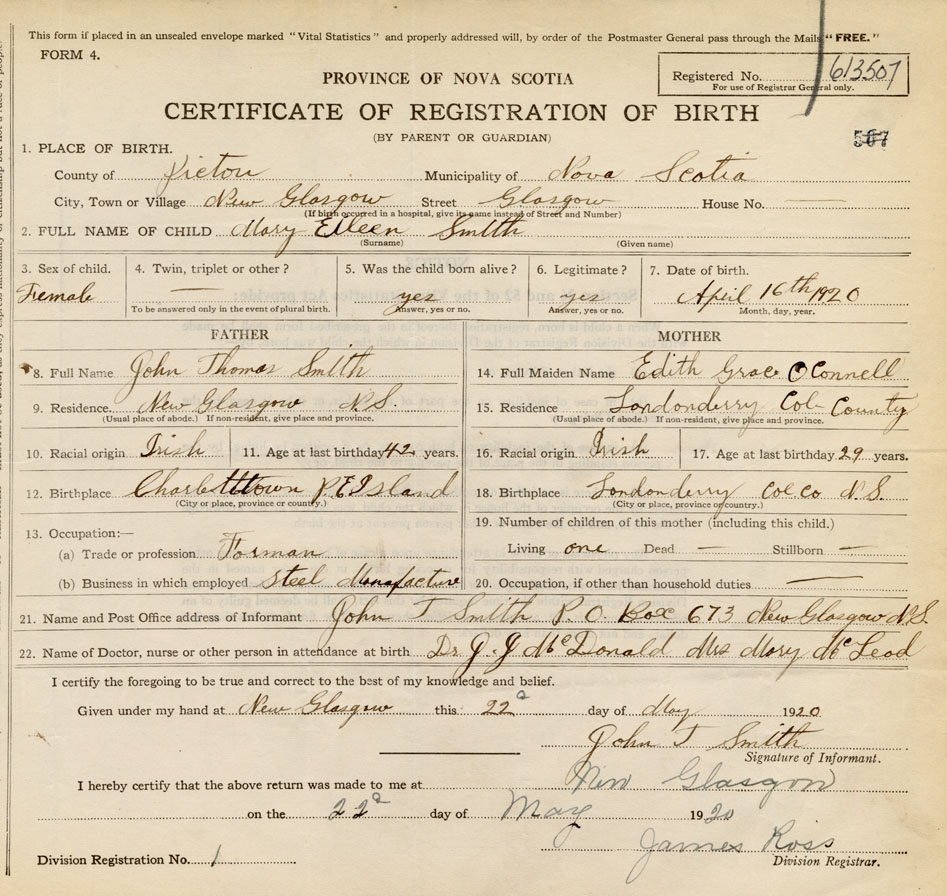 This form if placed in an unsealed envelope marked "Vital Statistics" and properly addressed will, by order of the Postmaster General pass through the Mails "FREE."
FORM 4.
Registered No. 613507
For use of Registrar General only.
PROVINCE OF NOVA SCOTIA
CERTIFICATE OF REGISTRATION OF BIRTH
(BY PARENT OR GUARDIAN)
507
1. PLACE OF BIRTH.
County of Pictou Municipality of Nova Scotia
City, Town or Village New Glasgow Street Glasgow House No. —
(If birth occurred in a hospital, give its name instead of Street and Number)
2. FULL NAME OF CHILD Mary Eileen Smith
(Surname) (Given name)
3. Sex of child. 4. Twin, triplet or other? 5. Was the child born alive? 6. Legitimate? 7. Date of birth.
Female — yes yes April 16th 1920
To be answered only in the event of plural birth. Answer, yes or no. Answer, yes or no. Month, day, year.
FATHER
8. Full Name John Thomas Smith
9. Residence. New Glasgow N.S.
(Usual place of abode.) If non-resident, give place and province.
10. Racial origin Irish 11. Age at last birthday 42 years.
12. Birthplace Charlotttown P.E Island
(City or place, province or country.)
13. Occupation:—
(a) Trade or profession Forman
(b) Business in which employed Steel Manufacture
MOTHER
14. Full Maiden Name Edith Grace O Connell
15. Residence Londonderry Col- County
(Usual place of abode.) If non-resident, give place and province.
16. Racial origin Irish 17. Age at last birthday 29 years.
18. Birthplace Londonderry Col Co N.S.
(City or place, province or country.)
19. Number of children of this mother (including this child.)
Living one Dead — Stillborn —
20. Occupation, if other than household duties —
21. Name and Post Office address of Informant John T Smith P.O. Box 673 New Glasgow N.S.
22. Name of Doctor, nurse or other person in attendance at birth Dr J. J McDonald Mrs Mary McLeod
I certify the foregoing to be true and correct to the best of my knowledge and belief.
Given under my hand at New Glasgow this 22 day of May 1920
John T Smith
Signature of Informant.
I hereby certify that the above return was made to me at New Glasgow
on the 22 day of May 1920
James Ross
Division Registration No. 1 Division Registrar.